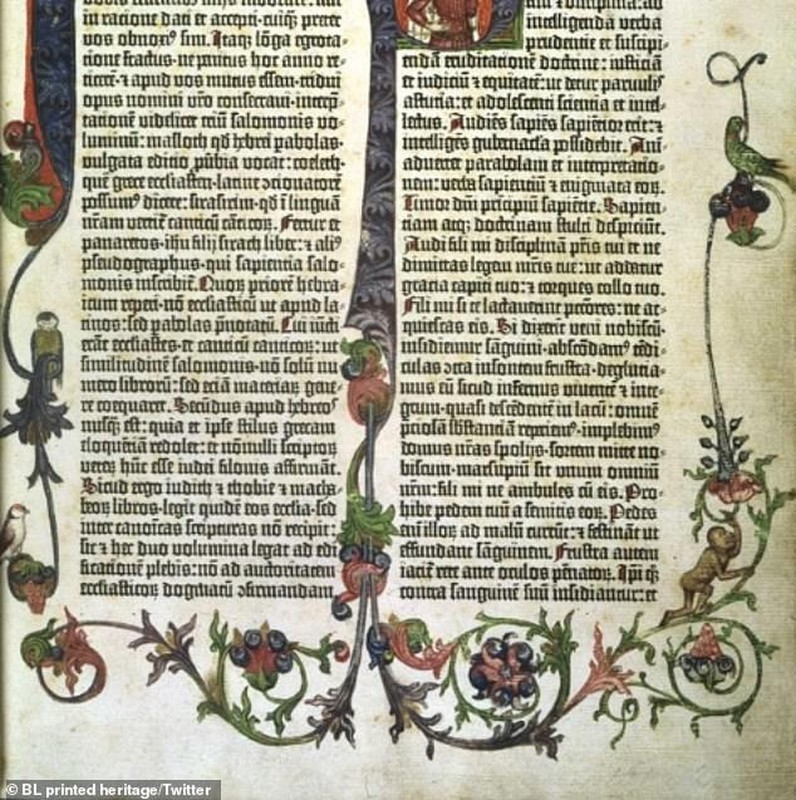 in ratione dati et accepti·cuiq̨ preter
vos obnoxi⁹ sim. Itaq̨ lōga egrota-
tione fractus·ne penitus hoc anno re-
ticerē·⁊ apud vos mutus essem·tridui
opus nomini vr̄o consecraui·interp̄-
tationē videlicet triū salomonis vo-
luminū: masloth qd̄ hebrei pabolas·
vulgata editio p̄ūbia vocat: coeleth·
quē grece ecclesiasten·latine ɔcionatorē
possum⁹ dicere: sirasirim·qd̄ ī linguā
nr̄am vertit᷑ canticū cāticoꝝ. Fertur et
panaretos·ihu filij sirach liber: ⁊ ali⁹
pseudographus·qui sapientia salo-
monis inscribit᷑. Quoꝝ priorē hebra-
icum repperi·nō ecclesiasticū ut apud la-
tinos: sed pabolas p̄notatū. Cui iūcti
erāt ecclesiastes·et canticū canticoꝝ: ut
similitudinē salomonis·nō solū nu-
mero librorū: sed eciā materiaꝝ gene-
re coequaret. Secūdus apud hebreos
nusq̄ est: quia et ipse stilus grecam
eloquētiā redolet: et nōnulli scriptoꝝ
veteꝝ hūc esse iudei filonis affirmāt.
Sicud ergo iudith ⁊ thobie ⁊ macha-
beoꝝ libros·legit quidē eos ecclesia·sed
inter canonicas scripturas nō recipit:
sic ⁊ hec duo volumina legat ad edi-
ficationē plebis: nō ad auctoritatem
ecclesiasticoꝝ dogmatū ɔfirmandam
intelligenda verba
prudentie et suscipi-
endā eruditationē doctrine: iusticiā
et iudiciū ⁊ equitatē: ut detur paruulis
astutia: et adolescenti scientia et intel-
lectus. Audiēs sapiēs sapiētior erit: ⁊
intelligēs gubernacla possidebit. Ani-
aduertet parabolam et interpretatio-
nem: verba sapientiū ⁊ enigmata eoꝝ.
Timor dn̄i principiū sapiētie. Sapien-
tiam atq̨ doctrinam stulti despiciūt.
Audi fili mi disciplinā pr̄is tui et ne
dimittas legem mr̄is tue: ut addatur
gracia capiti tuo: ⁊ torques collo tuo.
Fili mi si te lactauerint pctōres: ne ac-
quiescas eis. Si dixerīt veni nobiscū·
insidiemur sāguini·abscōdam⁹ tēdi-
culas ɔtra insontem frustra·deglucia-
mus eū sicud infernus viuentē ⁊ inte-
grum·quasi descēdentē in lacū: omnē
p̄ciosā s̄bstanciā reperiem⁹·implebim⁹
domus nr̄as spolijs·sortem mitte no-
biscum·marsupiū sit unum omniū
nr̄m: fili mi ne ambules cū eis. Pro-
hibe pedem tuū a semitis eoꝝ. Pedes
em̄ illoꝝ ad malū currūt: ⁊ festināt ut
effundant sāguinem. Frustra autem
iacit᷑ rete ante oculos pēnatoꝝ. Ip̄i q̨
contra sanguinē suū insidiantur: et
© BL printed heritage/Twitter